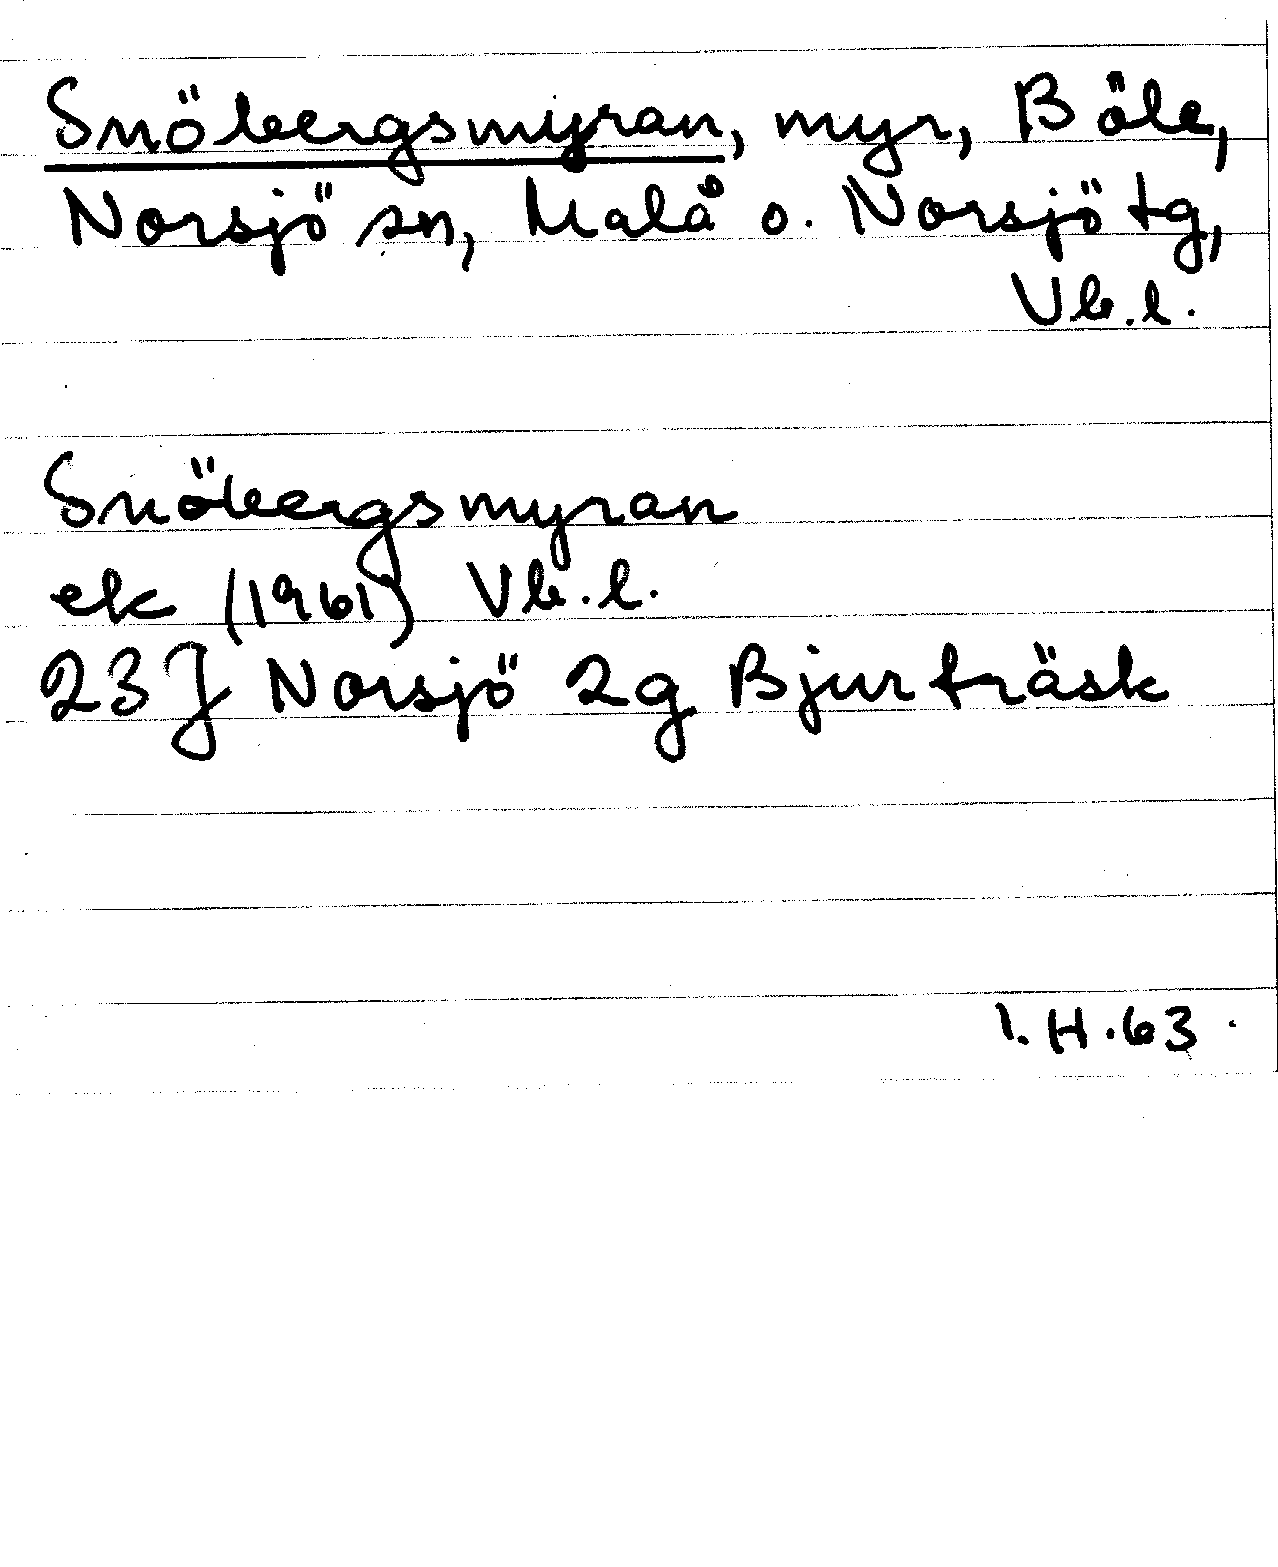 Snöbergsmyran, myr, Böle,
Norsjö sn, Malå o. Norsjö tg,
Vb.l.
Snöbergsmyran
ek (1961) Vb.l.
23J Norsjö 2g Bjurträsk
I.H.63.